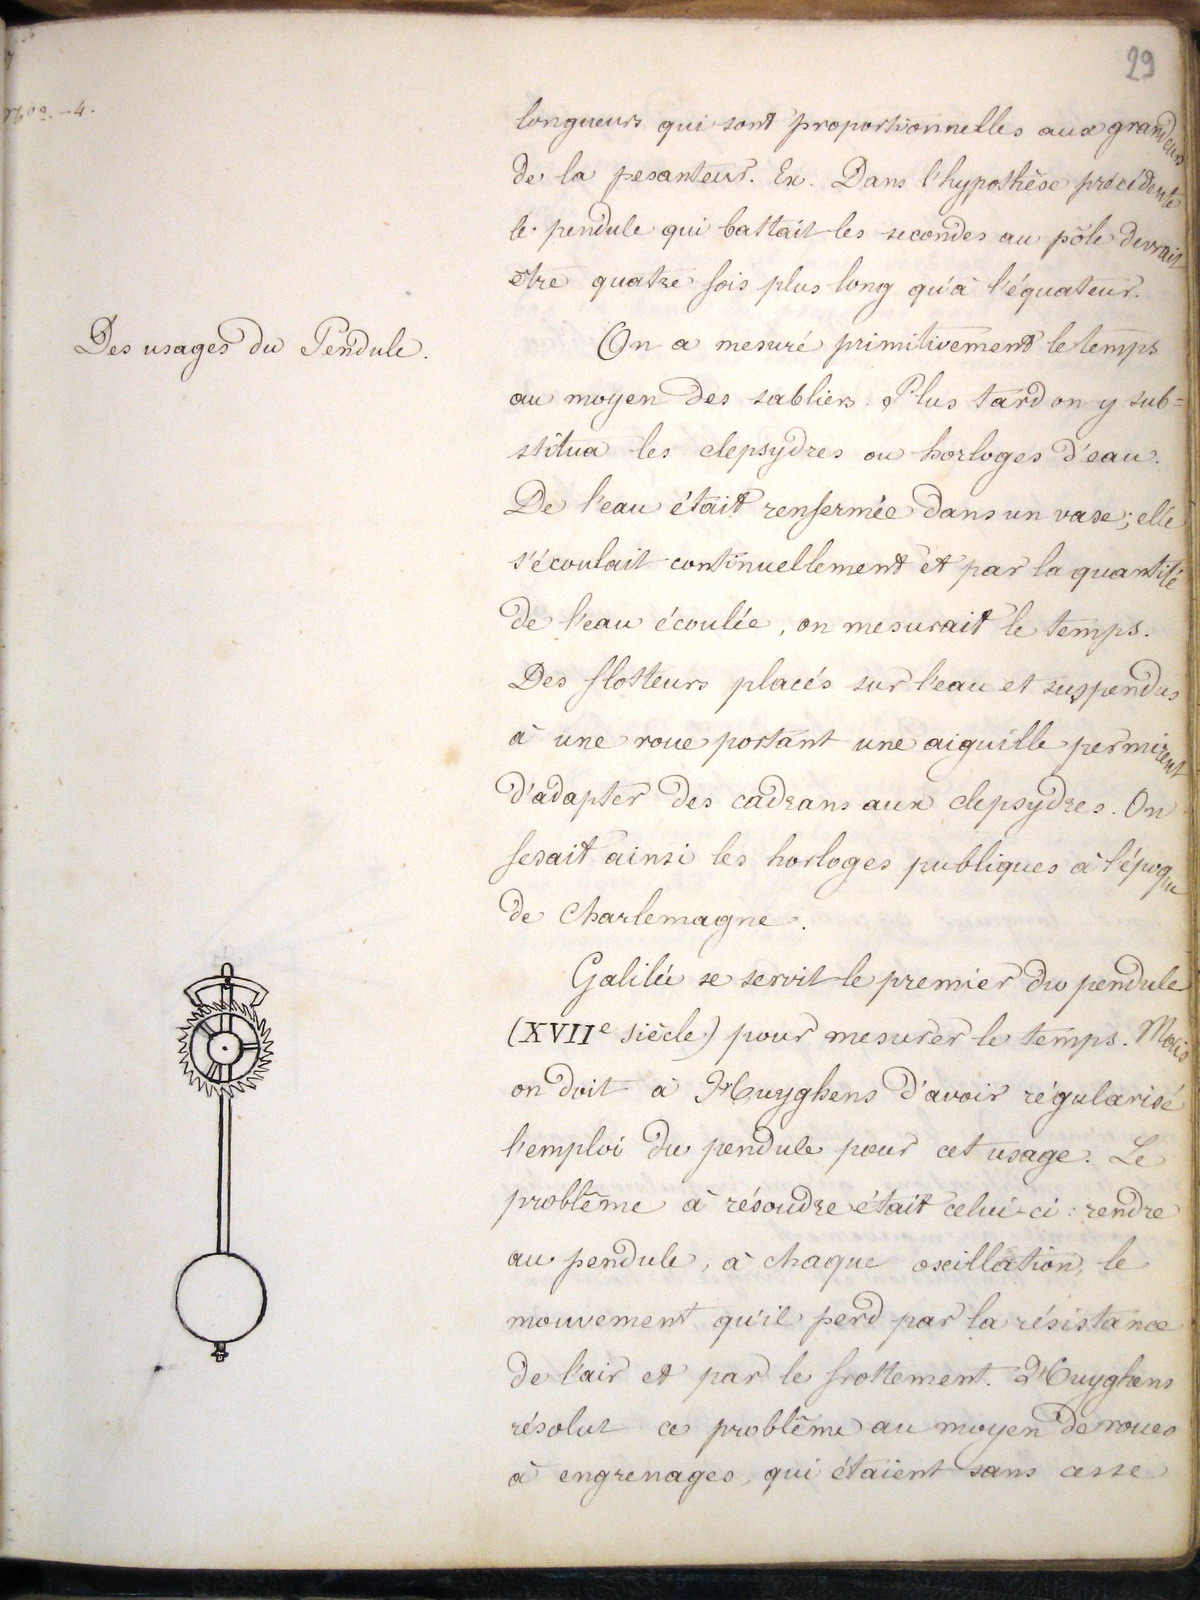 29
longueurs qui sont proportionnelles aux grandeurs
de la pesanteur. Ex. Dans l'hypothèse précédente
le pendule qui battait les secondes au pôle devrait
être quatre fois plus long qu'à l'équateur.
Des usages du Pendule.
On a mesuré primitivement le temps
au moyen des sabliers. Plus tard on y sub=
stitua les clepsydres ou horloges d'eau.
De l'eau était renfermée dans un vase; elle
s'écoulait continuellement et par la quantité
de l'eau écoulée, on mesurait le temps.
Des flotteurs placés sur l'eau et suspendus
à une roue portant une aiguille permirent
d'adapter des cadrans aux clepsydres. On
fesait ainsi les horloges publiques à l'époque
de Charlemagne.
Galilée se servit le premier du pendule
(XVIIe siècle) pour mesurer le temps. Mais
on doit à Huyghens d'avoir régularisé
l'emploi du pendule pour cet usage. Le
problême à résoudre était celui-ci : rendre
au pendule, à chaque oscillation, le
mouvement qu'il perd par la résistance
de l'air et par le frottement. Huyghens
résolut ce problême au moyen de roues
à engrenages qui étaient sans cesse